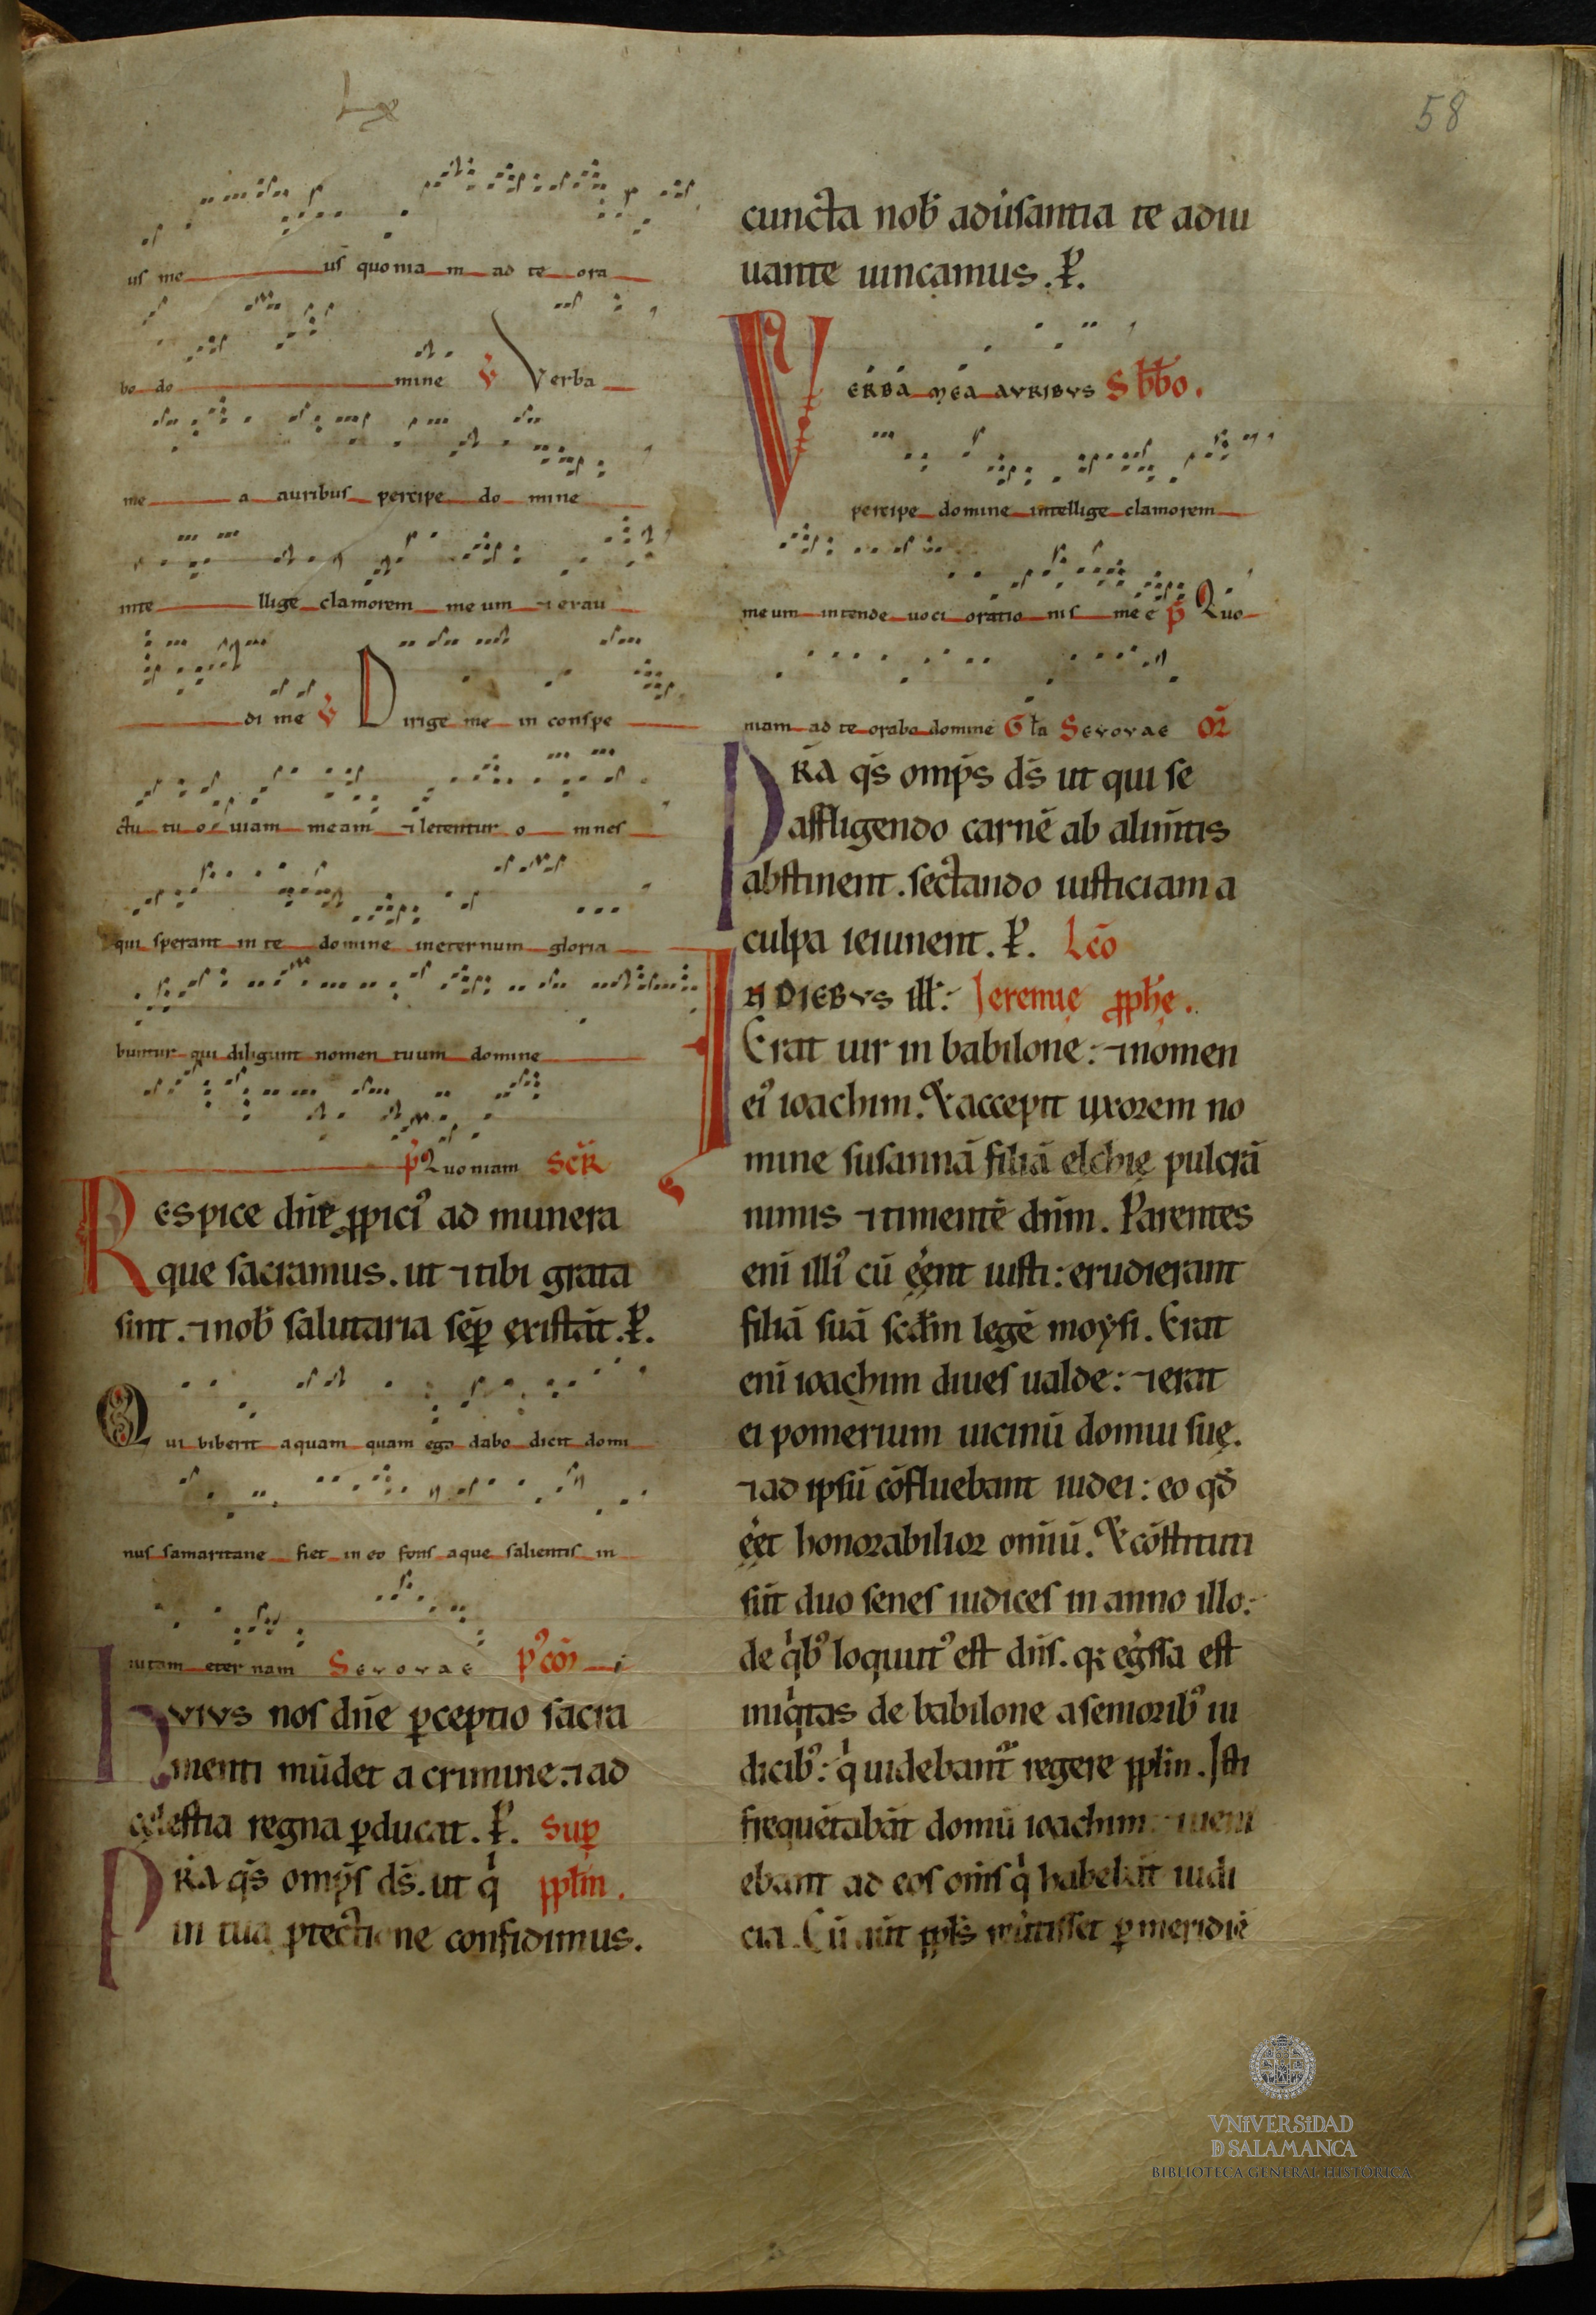 58
us me us̄ quonia m ad te ora
bo do mine V̄ Verba
me a auribus percipe do mine
inte llige clamorem me um ⁊ exau
di me V̄ Dirige me in conspe
ctu tu o uiam meam ⁊ letentur o mnes
qui sperant in te domine ineternum gloria
buntur qui diligunt nomen tuum domine
p̄ Quoniam Secr̄
Respice dn̄e ꝓpiciꝰ ad munera
que sacramus. ut ⁊ tibi grata
sint. ⁊ nob̄ salutaria sēp existāt. P̄.
Qui biberit aquam quam ego dabo dicit domi
nus samaritane fiet in eo fons aque salientis in
uitam eternam Seuouae pꝰcōm
huius nos dn̄e ꝑceptio sacra
menti mūdet a crimine. ⁊ ad
cęlestia regna ꝑducat. P̄. Suꝑ
Pr̄a qs̄ omp̄s ds̄. ut q̍ ppl̄m.
in tua ꝓtectione confidimus.
cuncta nob̄ adūsantia te adiu
uante uincamus. P̄.
Verba mea auribus Sbb̄o.
percipe domine intellige clamorem
meum intende uoci oratio nis mee p̄ Quo
niam ad te orabo domine Gl̄a Seuouae Or̄
Pr̄a qs̄ omp̄s ds̄ ut qui se
affligendo carnē ab alim̄tis
abstinent. sectando iusticiam a
culpa ieiunent. P̄. Lc̄o
In diebus ill̄: Ieremię ꝓph̄ę.
Erat uir in babilone: ⁊ nomen
eiꝰ ioachim. Et accepit uxorem no
mine susannā filiā elchię pulcrā
nimis ⁊ timentē dn̄m. Parentes
eni illiꝰ cū ēent iusti: erudierant
filiā suā scd̄m legē moysi. Erat
eni ioachim diues ualde: ⁊ erat
ei pomerium uicinū domui suę.
⁊ ad ipsū cōfluebant iudei: eo qd̄
ēet honorabilior om̄iū. Et cōstituti
sūt duo senes iudices in anno illo:
de q̍bꝰ locutꝰ est dn̄s. q̄ eḡssa est
iniq̍tas de babilone a seniorib̄ iu
dicibꝰ: q̍ uidebant᷑ regere ppl̄m. Isti
frequētabāt domū ioachim: ⁊ ueni
ebant ad eos om̄s q̍ habebāt iudi
cia. Cū aūt ppl̄s reūtisset ꝑ meridiē
VNIVERSIDAD
D SALAMANCA
BIBLIOTECA GENERAL HISTÓRICA